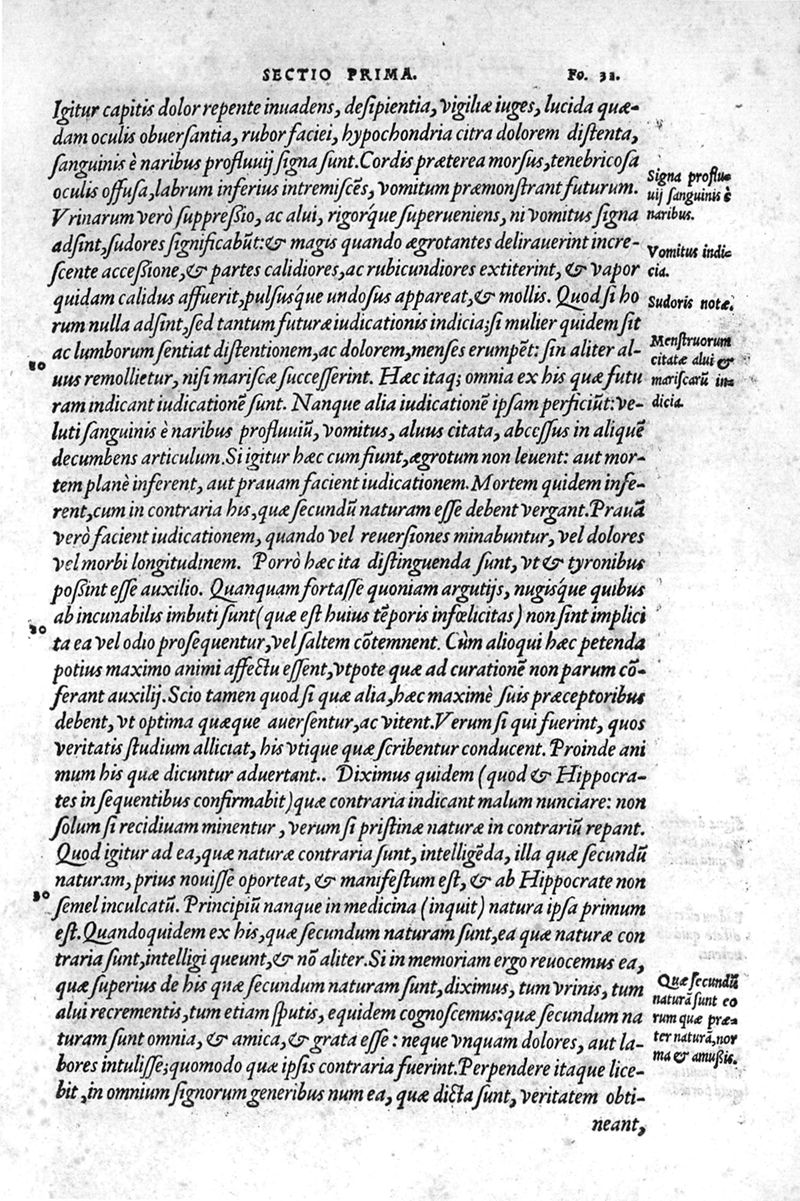 SECTIO PRIMA. Fo. 32.
Igitur capitis dolor repente inuadens, desipientia, vigiliæ iuges, lucida quæ-
dam oculis obuersantia, rubor faciei, hypochondria citra dolorem distenta,
sanguinis è naribus profluuij signa sunt. Cordis præterea morsus, tenebricosa
oculis offusa, labrum inferius intremiscẽs, vomitum præmonstrant futurum.
Vrinarum verò suppressio, ac alui, rigorq́ue superueniens, ni vomitus signa
adsint, sudores significabũt: & magis quando ægrotantes delirauerint incre-
scente accessione, & partes calidiores, ac rubicundiores extiterint, & vapor
quidam calidus affuerit, pulsusq́ue undosus appareat, & mollis. Quod si ho
rum nulla adsint, sed tantum futuræ iudicationis indicia; si mulier quidem sit
ac lumborum sentiat distentionem, ac dolorem, menses erumpẽt: sin aliter al-
uus remollietur, nisi mariscæ successerint. Hæc itaq; omnia ex his quæ futu
ram indicant iudicationẽ sunt. Nanque alia iudicationẽ ipsam perficiũt: ve-
luti sanguinis è naribus profluuiũ, vomitus, aluus citata, abcessus in aliquẽ
decumbens articulum. Si igitur hæc cum fiunt, ægrotum non leuent: aut mor-
tem planè inferent, aut prauam facient iudicationem. Mortem quidem infe-
rent, cum in contraria his, quæ secundũ naturam esse debent vergant. Prauã
verò facient iudicationem, quando vel reuersiones minabuntur, vel dolores
vel morbi longitudinem. Porrò hæc ita distinguenda sunt, vt & tyronibus
possint esse auxilio. Quanquam fortasse quoniam argutijs, nugisq́ue quibus
ab incunabilus imbuti sunt (quæ est huius tẽporis infœlicitas) non sint implici
ta ea vel odio prosequentur, vel saltem cõtemnent. Cùm alioqui hæc petenda
potius maximo animi affectu essent, vtpote quæ ad curationẽ non parum cõ-
ferant auxilij. Scio tamen quod si quæ alia, hæc maximè suis præceptoribus
debent, vt optima quæque auersentur, ac vitent. Verum si qui fuerint, quos
veritatis studium alliciat, his vtique quæ scribentur conducent. Proinde ani
mum his quæ dicuntur aduertant.. Diximus quidem (quod & Hippocra-
tes in sequentibus confirmabit) quæ contraria indicant malum nunciare: non
solum si recidiuam minentur, verum si pristinæ naturæ in contrariũ repant.
Quod igitur ad ea, quæ naturæ contraria sunt, intelligẽda, illa quæ secundũ
naturam, prius nouisse oporteat, & manifestum est, & ab Hippocrate non
semel inculcatũ. Principiũ nanque in medicina (inquit) natura ipsa primum
est. Quandoquidem ex his, quæ secundum naturam sunt, ea quæ naturæ con
traria sunt, intelligi queunt, & nõ aliter. Si in memoriam ergo reuocemus ea,
quæ superius de his qnæ secundum naturam sunt, diximus, tum vrinis, tum
alui recrementis, tum etiam sputis, equidem cognoscemus: quæ secundum na
turam sunt omnia, & amica, & grata esse: neque vnquam dolores, aut la-
bores intulisse; quomodo quæ ipsis contraria fuerint. Perpendere itaque lice-
bit, in omnium signorum generibus num ea, quæ dicta sunt, veritatem obti-
neant,
Signa proflu-
uij sanguinis è
naribus.
Vomitus indi-
cia.
Sudoris notæ.
Menstruorum
citatæ alui &
mariscarũ in-
dicia.
Quæ secundũ
naturã sunt eo
rum quæ præ-
ter naturã, nor
ma & amussis.
20
30